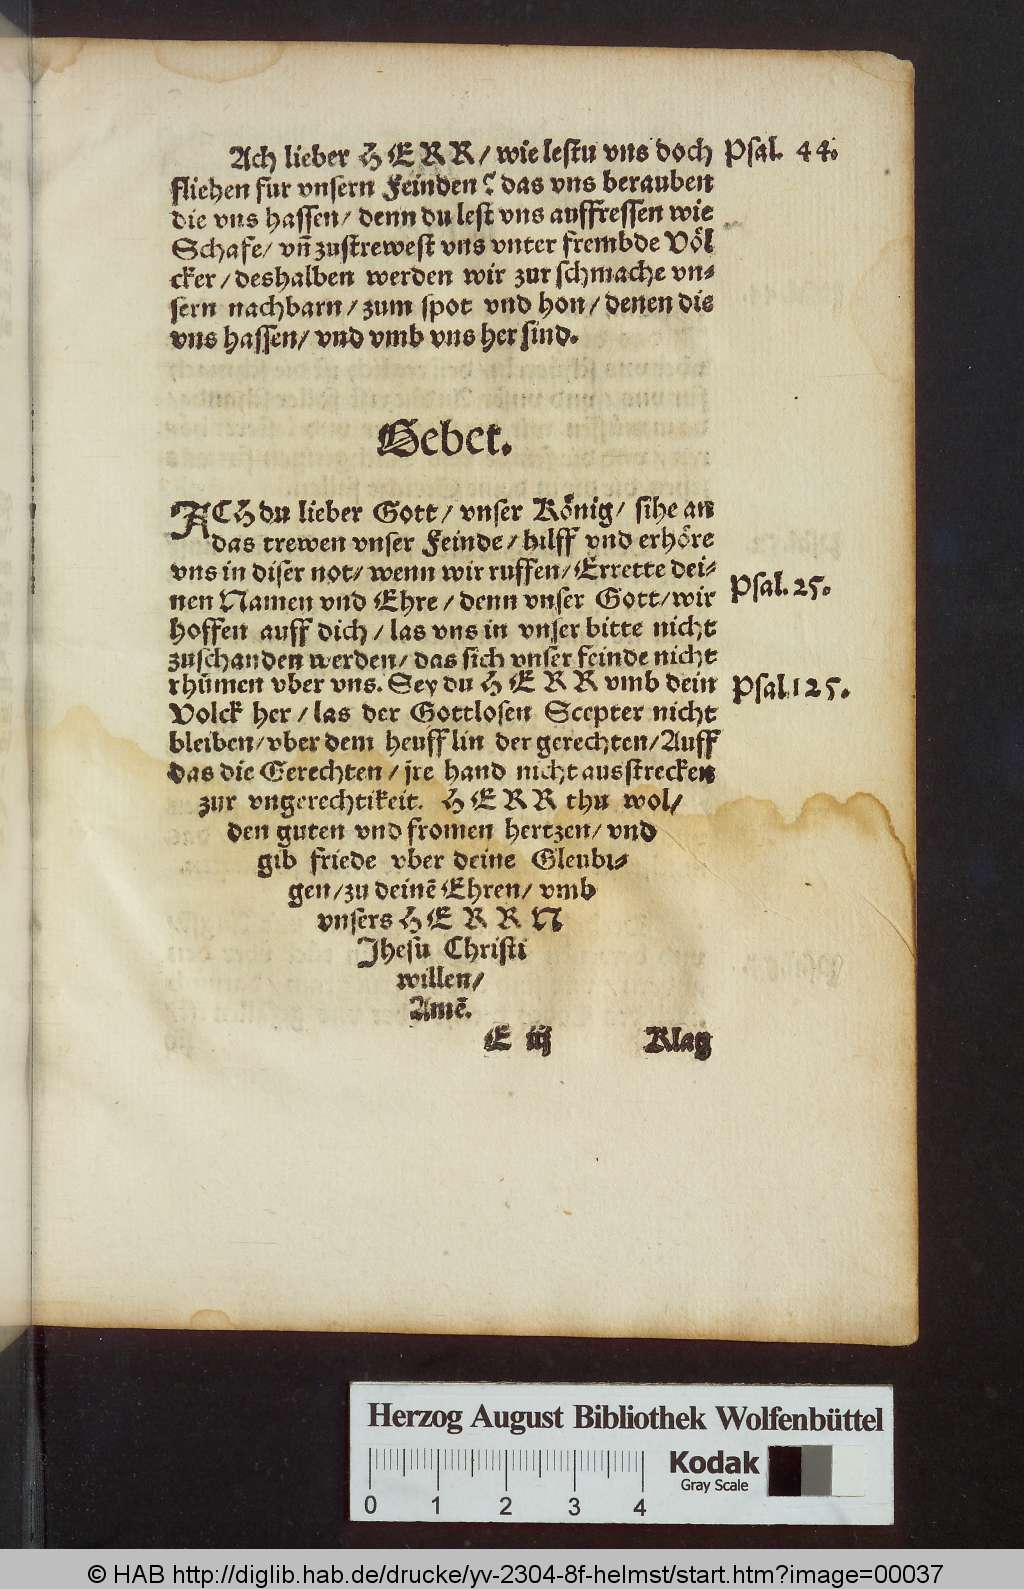 Ach lieber HERR/ wie lestu vns doch Psal. 44.
fliehen fur vnsern Feinden? das vns berauben
die vns hassen/ denn du lest vns auffressen wie
Schafe/ vn̄ zustrewest vns vnter frembde Völ
cker/ deshalben werden wir zur schmache vn-
sern nachbarn/ zum spot vnd hon/ denen die
vns hassen/ vnd vmb vns her sind.
Gebet.
ACH du lieber Gott/ vnser König/ sihe an
das trewen vnser Feinde/ hilff vnd erhöre
vns in diser not/ wenn wir ruffen/ Errette dei-
nen Namen vnd Ehre/ denn vnser Gott/ wir Psal. 25.
hoffen auff dich/ las vns in vnser bitte nicht
zuschanden werden/ das sich vnser feinde nicht
rhümen vber vns. Sey du HERR vmb dein Psal. 125.
Volck her/ las der Gottlosen Scepter nicht
bleiben/ vber dem heufflin der gerechten/ Auff
das die Gerechten/ jre hand nicht ausstrecken
zur vngerechtikeit. HERR thu wol/
den guten vnd fromen hertzen/ vnd
gib friede vber deine Gleubi-
gen/ zu deinē Ehren/ vmb
vnsers HERRN
Jhesu Christi
willen/
Amē.
E iij Klag
Herzog August Bibliothek Wolfenbüttel
0 1 2 3 4
Kodak
Gray Scale
© HAB http://diglib.hab.de/drucke/yv-2304-8f-helmst/start.htm?image=00037